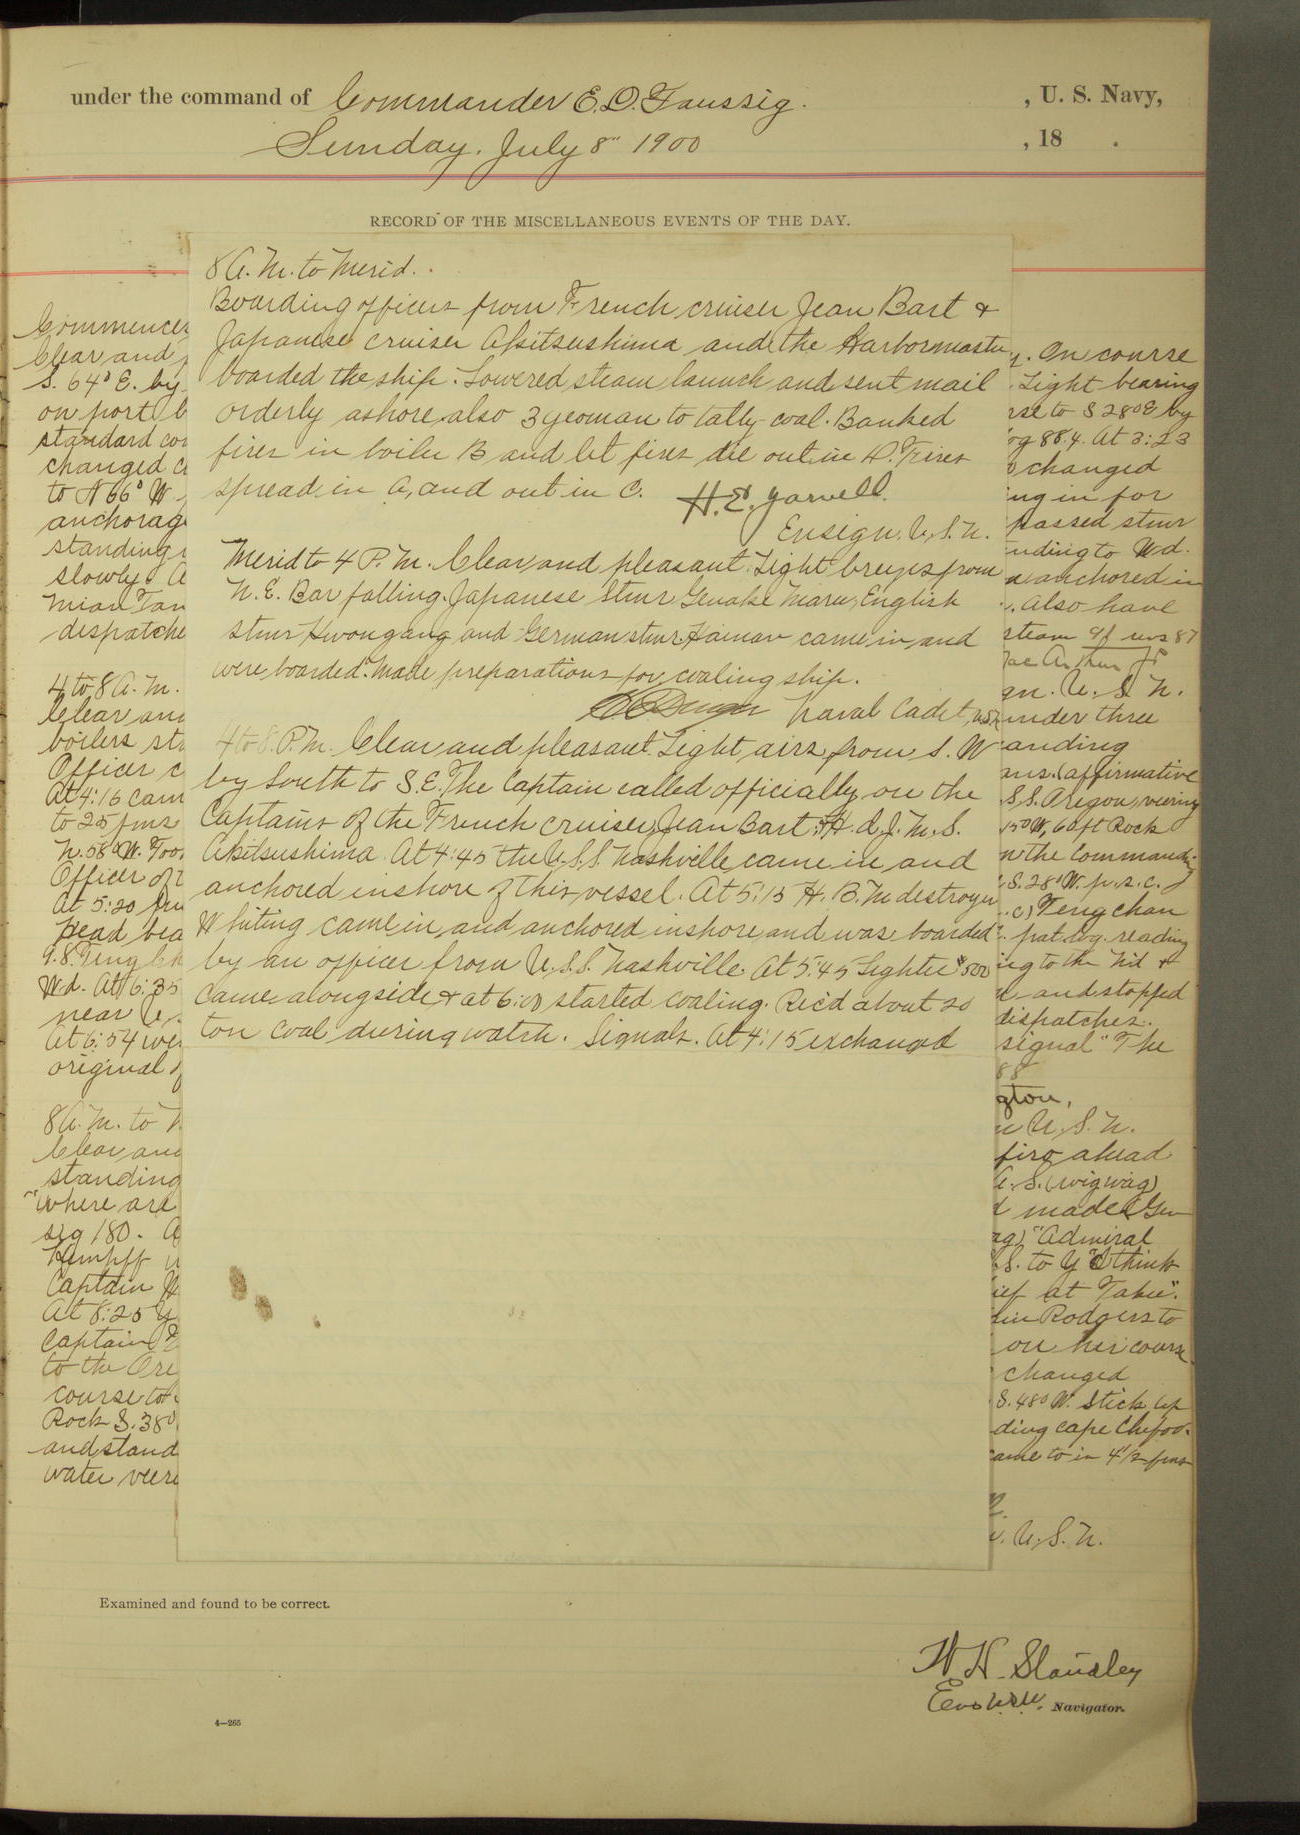 under the command of Commander E. D. Taussig. , U. S. Navy,
Sunday. July 8" 1900 , 18 .
RECORD OF THE MISCELLANEOUS EVENTS OF THE DAY.
8 A. M. to Merid. .
Boarding officers from French cruiser Jean Bart &
Japanese cruiser Akitsushima and the Harbormaster
boarded the ship. Lowered steam launch and sent mail
orderly ashore, also 3 yeoman to tally coal. Banked
fires in boiler B and let fires die out in D. Fires
spread in A, and out in C. H. E. Yarnell.
Ensign, U. S. N.
Merid to 4 P. M. Clear and pleasant. Light breezes from
N. E. Bar falling. Japanese Stmr Maru, English
stmr Kwongang and German stmr Hainan came in and
were boarded. Made preparations for coaling ship.
Naval Cadet,
4 to 8. P. M. Clear and pleasant. Light airs from S. W
by South to S. E. The Captain called officially on the
Captains of the French cruiser, Jean Bart & H. I. J. M. S.
Akitsushima. At 4:45 the U. S. S. Nashville came in and
anchored inshore of this vessel. At 5:15 H. B. M. destroyer
Whiting came in and anchored inshore and was boarded
by an officer from U. S. S. Nashville. At 5:45 Lighter # 500
came alongside & at 6:00 started coaling. Rec'd about 20
ton coal during watch. Signals. At 4:15 exchanged
Commences
Clear and
S. 64° E. by
on port b
standard co
changed c
to N 66° W
anchorag
standing
slowly. A
Mian Tan
dispatche
4 to 8 A. M.
Clear and
boilers st
Officer c
At 4:16 cam
to 25 fms
N. 58° W. Too
Officer of
At 5:20
head bea
Wd. At 6:35
near
At 6:54 we
original
8 A. M. to
Clear and
standing
"where are
sig 180. A
Kempff
Captain
At 8:25 y
Captain
to the Ore
course to
Rock S. 38°
and stand
water veer
. On course
. Light bearing
rse to S 28° E by
og 88.4. At 3:23
changed
ing in for
passed stmr
nding to Wd.
anchored in
. Also have
steam revs 87
ac Arthur Jr
gn. U. S. N.
under three
anding
ans. (affirmative
S. S. Oregon, veering
150 W, 60 ft Rock
n the Commandi
S. 28° W. p. s. c.
Teng chan
pat. log. reading
ing to the N'd &
d and stopped
dispatches.
signal "The
88
gton,
n U. S. N.
firo ahead
S. (wigwag)
made (Gen
ag) "Admiral
S. to Y "I think
ief at Taku".
ain Rodgers to
on her course
changed
S. 48° W. Stick up
ding cape Chefoo.
came to in 4 1/2 fms
. U. S. N.
Examined and found to be correct.
W H Standley
Ens U.S.N. Navigator.
4—265